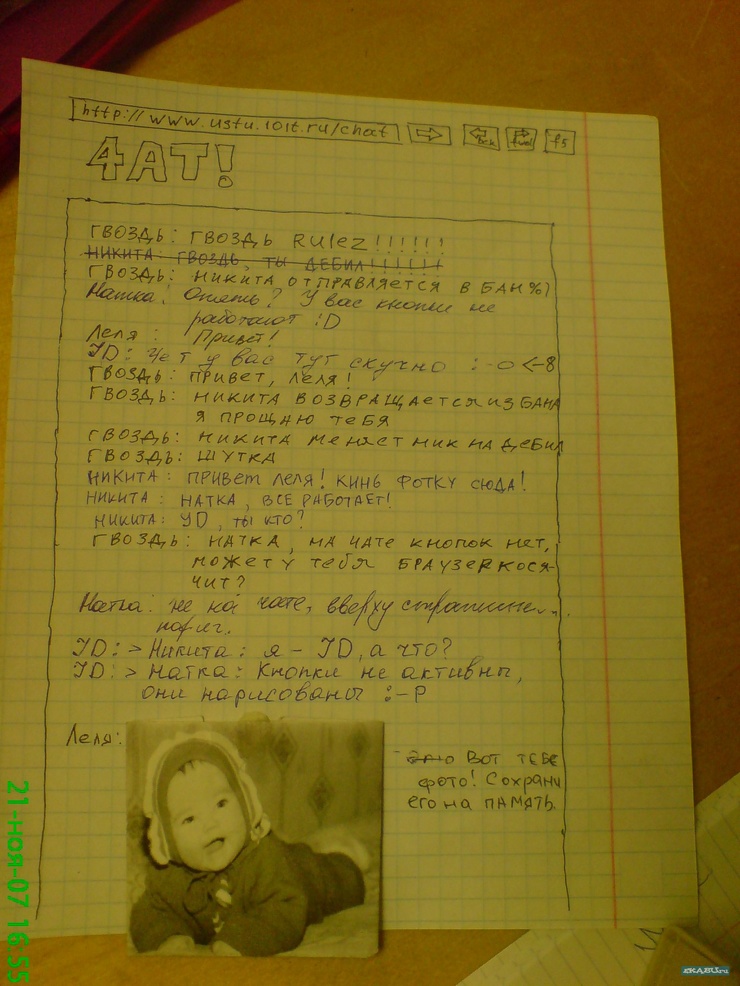 http://www.ustu.1o1t.ru/chat
Bck
fwd
f5
4АТ!
ГВОЗДЬ: ГВОЗДЬ RULEZ!!!!!!
НИКИТА: ГВОЗДЬ, ТЫ ДЕБИЛ!!!!!!!
ГВОЗДЬ: НИКИТА ОТПРАВЛЯЕТСЯ В БАН %)
Натка: Опять? У вас кнопки не
работают :D
Леля: Привет!
JD: Чёт у вас тут скучно :-о <-8
ГВОЗДЬ: ПРИВЕТ, ЛЕЛЯ!
ГВОЗДЬ: НИКИТА ВОЗВРАЩАЕТСЯ ИЗ БАНА
Я ПРОЩАЮ ТЕБЯ
ГВОЗДЬ: НИКИТА МЕНЯЕТ НИК НА ДЕБИЛ
ГВОЗДЬ: ШУТКА
НИКИТА: ПРИВЕТ ЛЕЛЯ! КИНЬ ФОТКУ СЮДА!
НИКИТА: НАТКА, ВСЕ РАБОТАЕТ!
НИКИТА: JD, ТЫ КТО?
ГВОЗДЬ: НАТКА, НА ЧАТЕ КНОПОК НЕТ,
МОЖЕТ У ТЕБЯ БРАУЗЕR КОСЯ-
ЧИТ?
Натка: не на чате, вверху
JD: > Никита: я - JD, а что?
JD: > Натка: Кнопки не активны,
они нарисованы :-P
Леля:
Вот тебе
фото! Сохрани
его на ПАМЯТЬ.
21-ноя-07 16:55
ZKABU.ru